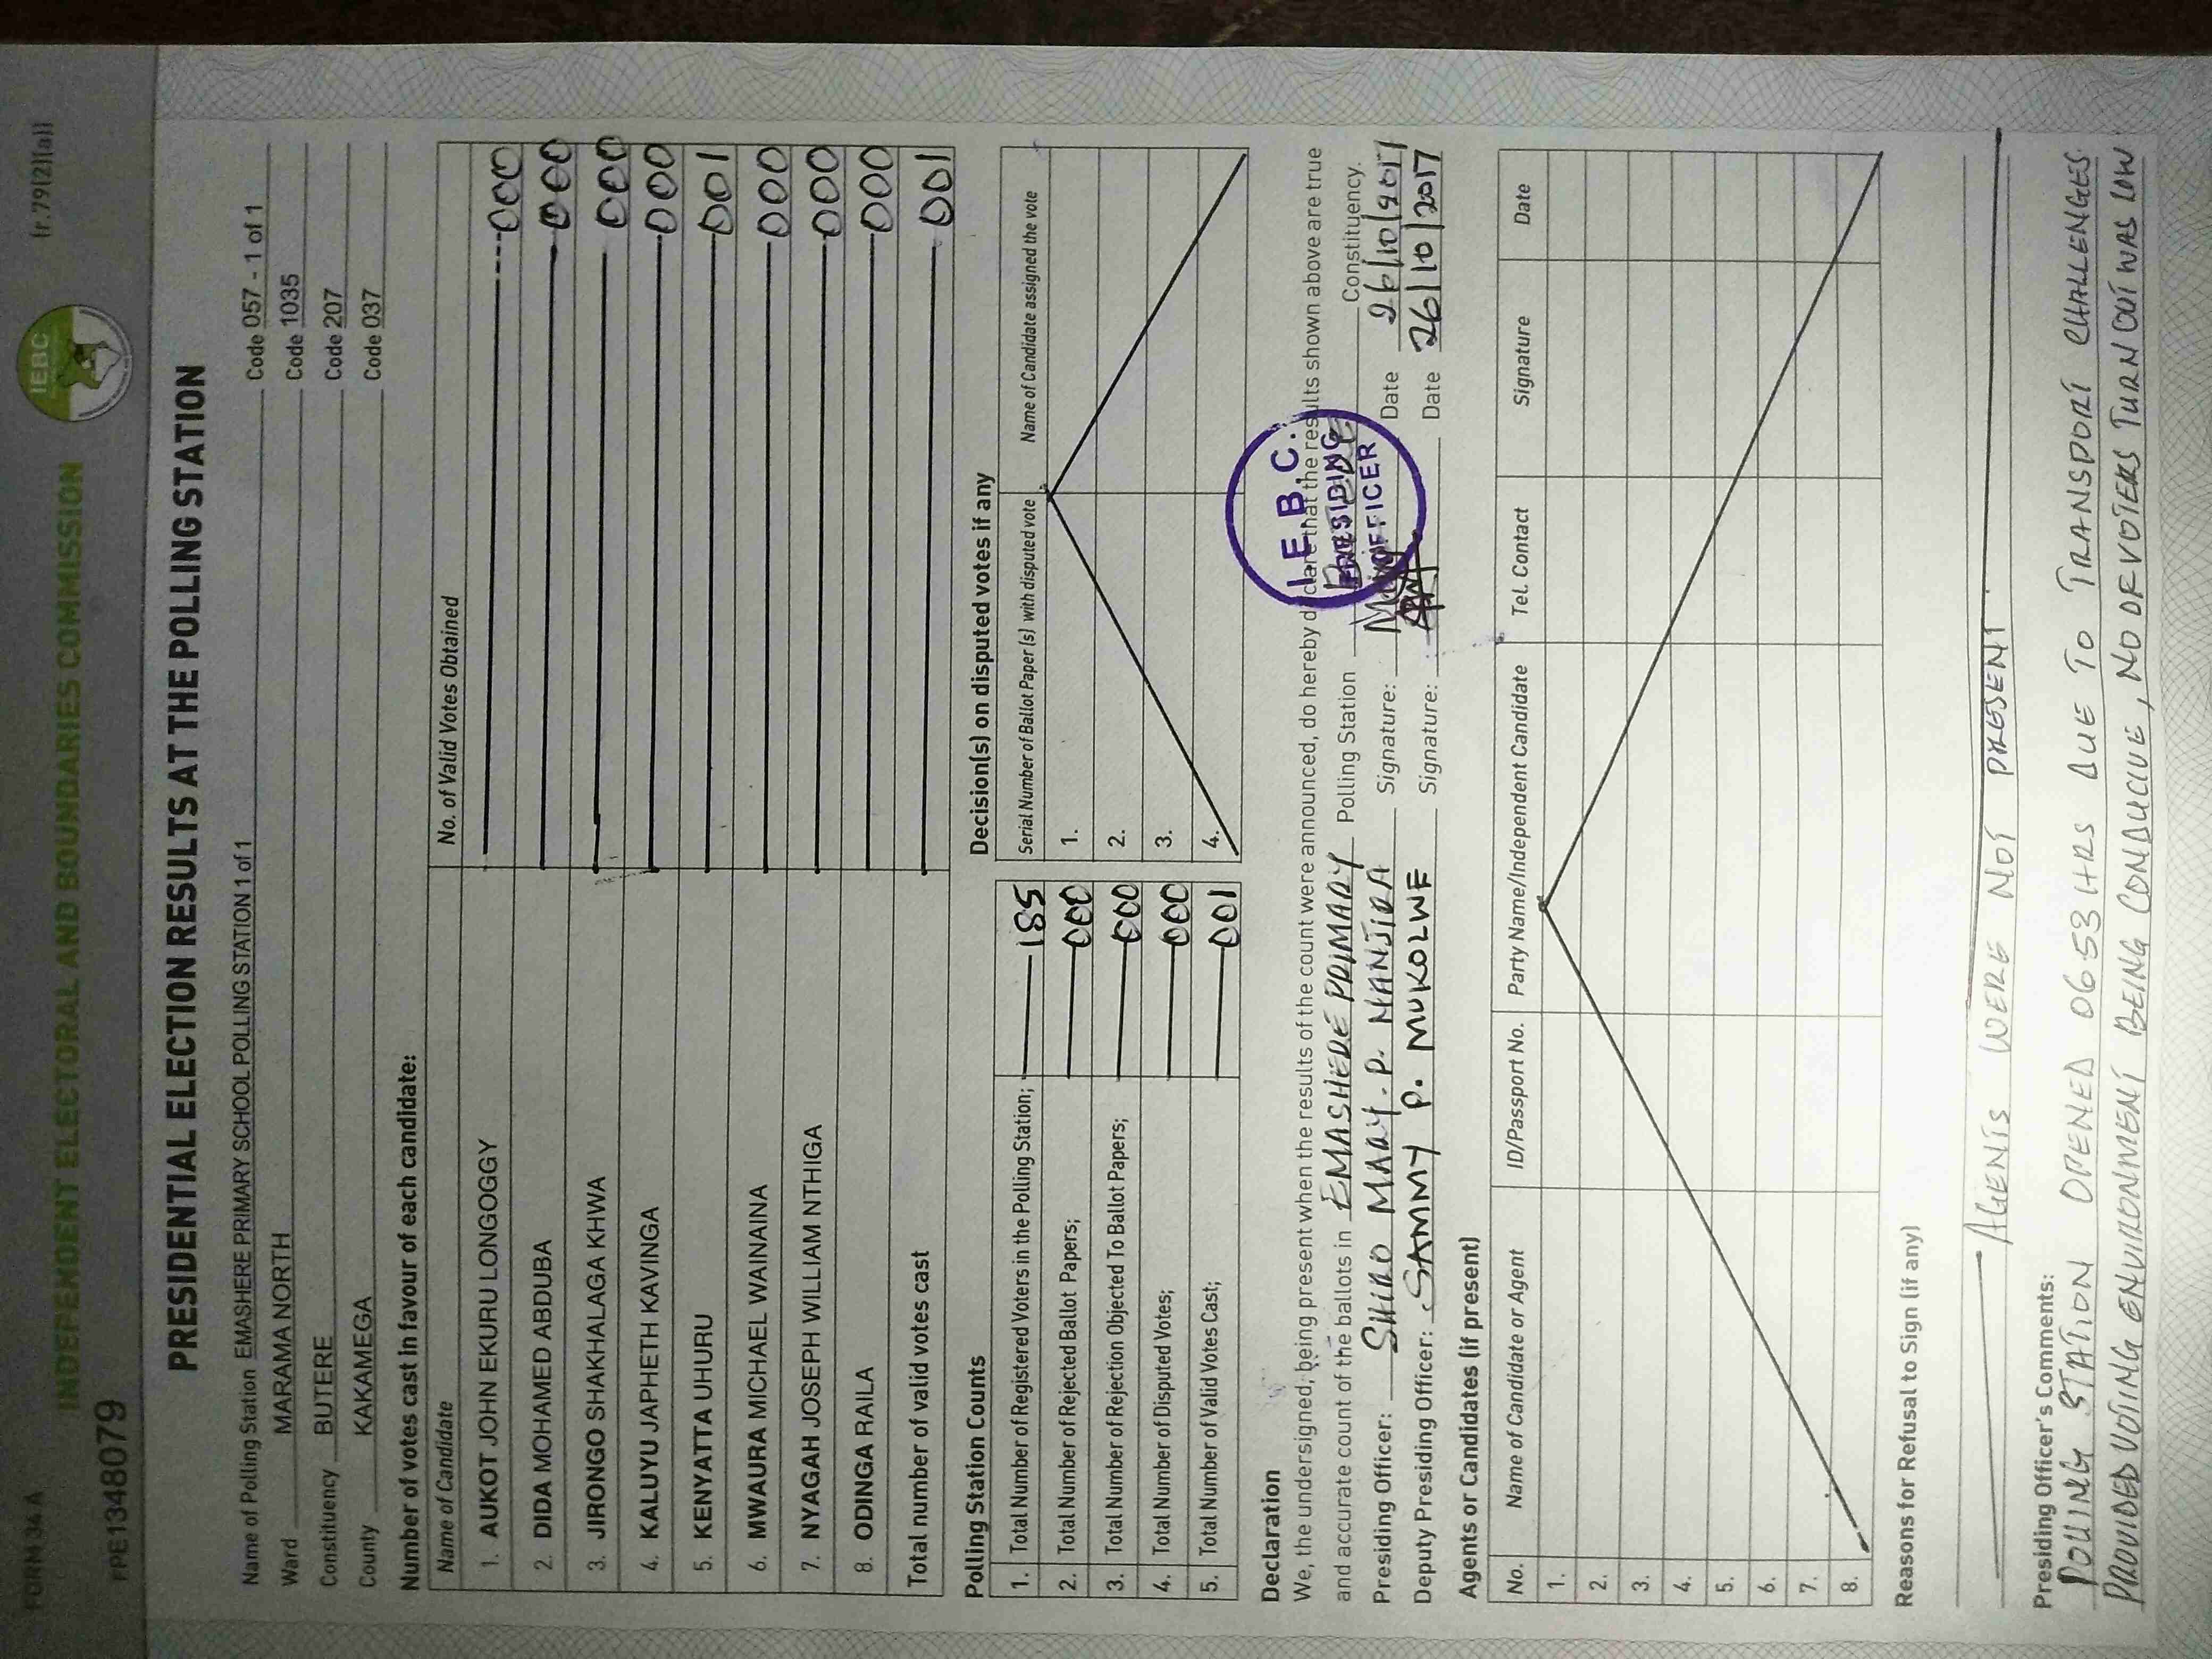 FORM 34 A
(r.79(2)(a))
INDEPENDENT ELECTORAL AND BOUNDARIES COMMISSION
IEBC
PPE1348079
PRESIDENTIAL ELECTION RESULTS AT THE POLLING STATION
Name of Polling Station EMASHERE PRIMARY SCHOOL POLLING STATION 1 of 1 Code 057 - 1 of 1
Ward MARAMA NORTH Code 1035
Constituency BUTERE Code 207
County KAKAMEGA Code 037
Number of votes cast in favour of each candidate:
Name of Candidate No. of Valid Votes Obtained
1. AUKOT JOHN EKURU LONGOGGY 000
2. DIDA MOHAMED ABDUBA 000
3. JIRONGO SHAKHALAGA KHWA 000
4. KALUYU JAPHETH KAVINGA 000
5. KENYATTA UHURU 001
6. MWAURA MICHAEL WAINAINA 000
7. NYAGAH JOSEPH WILLIAM NTHIGA 000
8. ODINGA RAILA 000
Total number of valid votes cast 001
Polling Station Counts
1. Total Number of Registered Voters in the Polling Station; 185
2. Total Number of Rejected Ballot Papers; 000
3. Total Number of Rejection Objected To Ballot Papers; 000
4. Total Number of Disputed Votes; 000
5. Total Number of Valid Votes Cast; 001
Decision(s) on disputed votes if any
Serial Number of Ballot Paper (s) with disputed vote Name of Candidate assigned the vote
1.
2.
3.
4.
Declaration
We, the undersigned, being present when the results of the count were announced, do hereby declare that the results shown above are true
and accurate count of the ballots in EMASHERE PRIMARY Polling Station BUTERE Constituency.
Presiding Officer: SHIRO MARY.P. NANJIRA Signature: Date 26/10/2017
Deputy Presiding Officer: SAMMY P. MUKOLWE Signature: Date 26/10/2017
I.E.B.C.
PRESIDING
OFFICER
Agents or Candidates (if present)
No. Name of Candidate or Agent ID/Passport No. Party Name/Independent Candidate Tel. Contact Signature Date
1.
2.
3.
4.
5.
6.
7.
8.
Reasons for Refusal to Sign (if any)
AGENTS WERE NOT PRESENT.
Presiding Officer's Comments:
POLLING STATION OPENED 0653HRS DUE TO TRANSPORT CHALLENGES.
PROVIDED VOTING ENVIRONMENT BEING CONDUCIVE, NO OF VOTERS TURN OUT WAS LOW